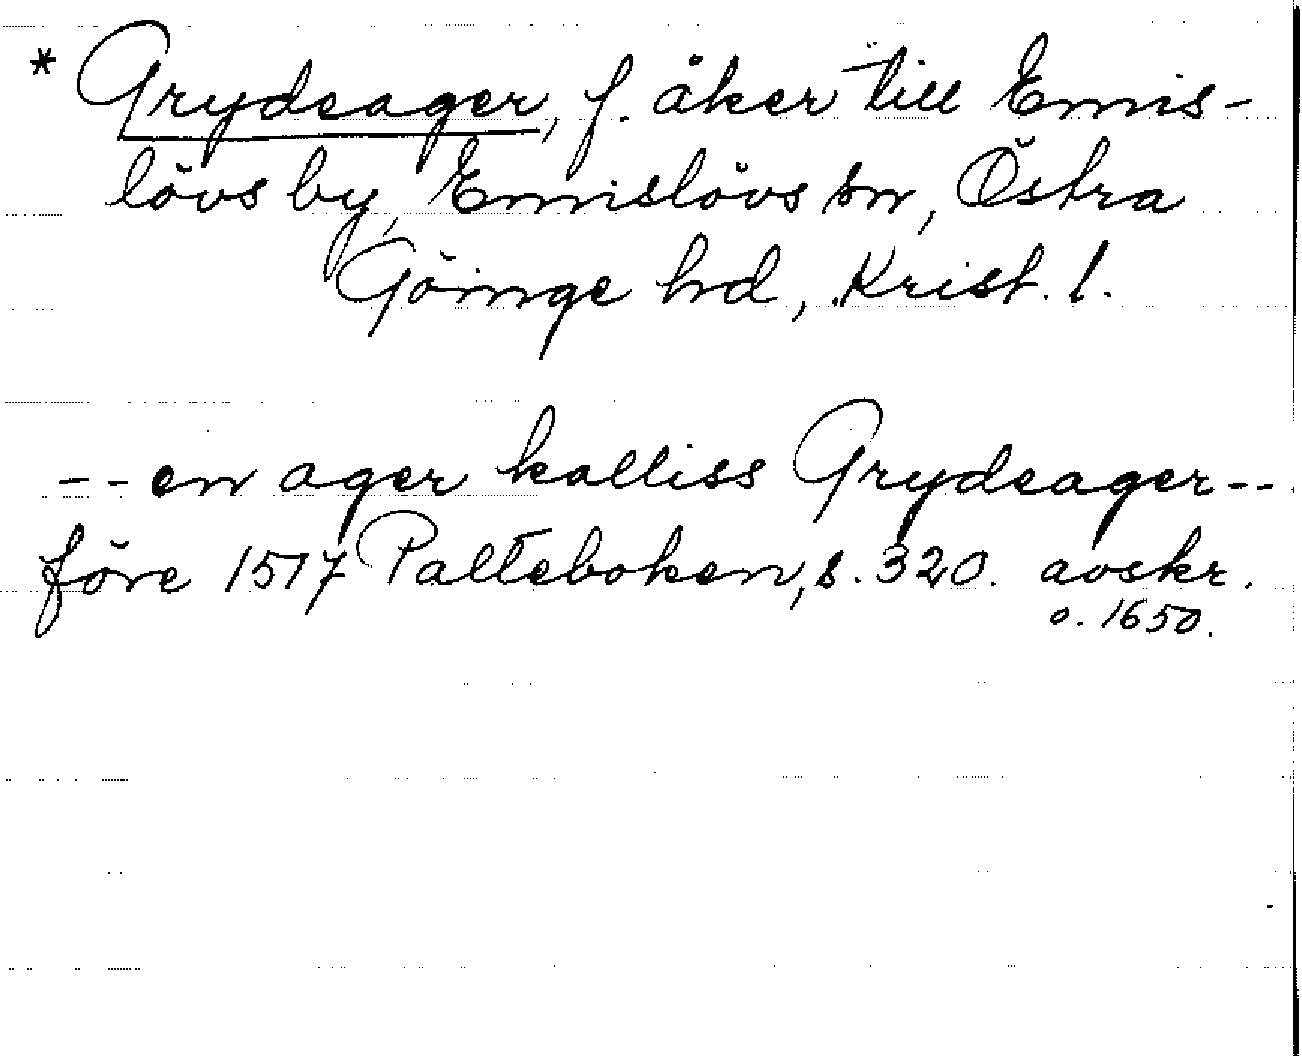 * Grydeager, f. åker till Emis-
lövs by, Emislövs sn, Östra
Göinge hd, Krist. l.
-- en ager kalliss Grydeager --
före 1517 Palteboken, s. 320. avskr.
o. 1650.